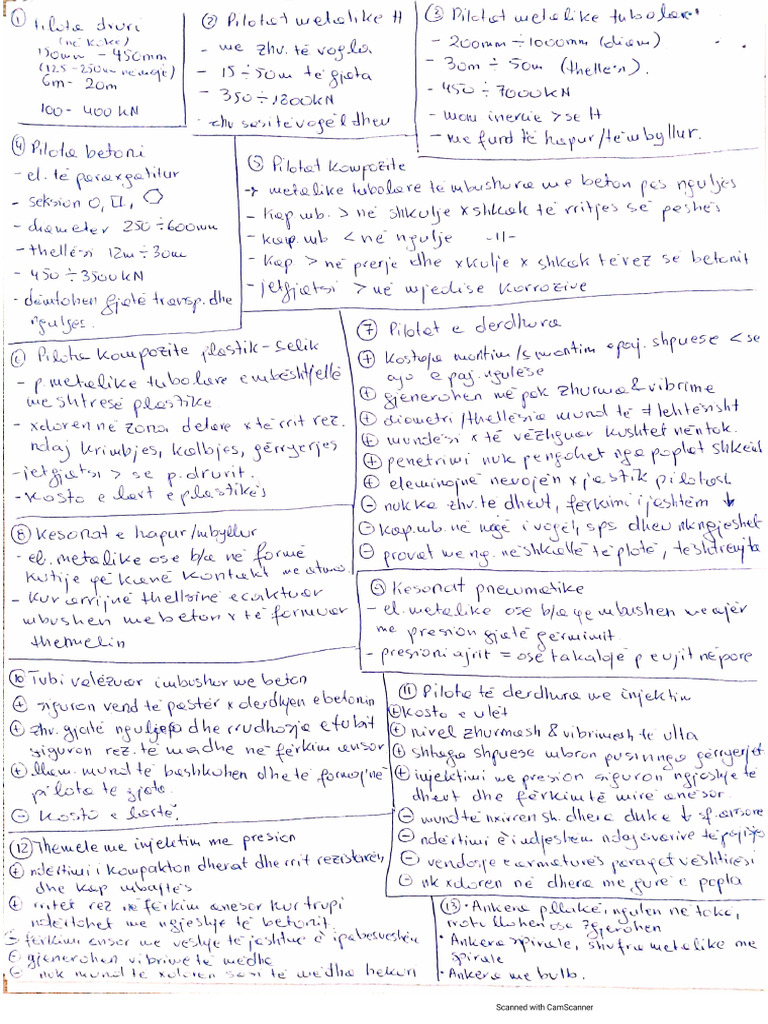 ① Pilota druri
(në kokë)
150mm - 450mm
(125-250mm në majë)
6m - 20m
100 - 400 kN
② Pilotat metalike H
- me zhv. të vogla
- 15÷50m të gjata
- 350÷1800kN
- zhv sasi të vogël dheu
③ Pilotat metalike tubolare
- 200mm÷1000mm (diam)
- 30m ÷ 50m (thellësi).
- 450 ÷ 7000kN
- mom inercie > se H
- me fund të hapur/të mbyllur.
④ Pilota betoni
- el. të parapërgatitur
- seksion O, □, ⬡
- diametër 250÷600mm
- thellësi 12m÷30m
- 450÷3500kN
- dëmtohen gjatë transp. dhe
nguljes.
⑤ Pilotat kompozite
→ metalike tubolare të mbushura me beton pas nguljes
- kap.mb. > në shkulje x shkak të rritjes së peshës
- kap.mb < në ngulje -11-
- kap > në prerje dhe xkulje x shkak të rez së betonit
- jetgjatsi > në mjedise korrozive
⑥ Pilota kompozite plastik-çelik
- p.metalike tubolare e mbështjellë
me shtresë plastike.
- xdoren në zona detare x të rrit rez.
ndaj krimbjes, kalbjes, gërryerjes
- jetgjatsi > se p.drurit.
- kosto e lart e plastikës
⑦ Pilotat e derdhura
⊕ kostoja montim/çmontim e paj. shpuese < se
ajo e paj. ngulëse
⊕ gjenerohen më pak zhurma & vibrime
⊕ diametri/thellësia mund të ≠ lehtësisht
⊕ mundësi x të vëzhguar kushtet nëntok.
⊕ penetrimi nuk pengohet nga poplat shkëmb
⊕ eleminojnë nevojën x jastik pilotash
⊖ nuk ka zhv. të dheut, fërkimi i jashtëm ↓
⊖ kap.mb. në majë i vogël, sps dheu nk ngjeshet
⊖ provat me ng. në shkallë të plotë, të shtrenjta
⑧ Kesonat e hapur/mbyllur
- el. metalike ose b/a në formë
kutije që kanë kontakt me atmo.
- kur arrijnë thellsinë e caktuar
mbushen me beton x të formuar
themelin
⑨ Kesonat pneumatike
- el. metalike ose b/a qe mbushen me ajër
me presion gjatë gërmimit.
- presioni ajrit = ose takalojë p e ujit në pore
⑩ Tubi valëzuar i mbushur me beton
⊕ siguron vend të pastër x derdhjen e betonin
⊕ zhv. gjatë nguljes dhe rrudhosja e tubit
siguron rez. të madhe në fërkim ansor
⊕ mund të bashkohen dhe të formojnë
pilota të gjata.
⊖ kosto e lartë.
⑪ Pilota të derdhura me injektim
⊕ kosto e ulët
⊕ nivel zhurmash & vibrimesh të ulta
⊕ shtaga shpuese mbron pusin nga gërryerjet
⊕ injektimi me presion siguron ngjeshje të
dheut dhe fërkim të mirë anësor.
⊖ mund të nxirren sh. dhera duke ↓ sf. ansore
⊖ ndërtimi e i ndjeshëm ndaj
⊖ vendosje e armaturës paraqet vështirësi
⊖ nk xdoren në dhera me gurë e popla
⑫ Themele me injektim me presion
⊕ ndërtimi i kompakton dherat dhe rrit rezistencën
dhe kap mbajtës
⊕ rritet rez në fërkim anesor kur trupi
ndërtohet me ngjeshje të betonit.
⊖ fërkimi ansor me veshje të jashtme ë i pabesueshëm
⊖ gjenerohen vibrime të mëdha
⊖ nuk mund të xdoren sasi të mëdha hekuri
⑬ • Ankera pllakë, ngulen në tokë,
rrotullohen ose zgjerohen
• Ankera spirale, shufra metalike me
spirale
• Ankera me bulb.
Scanned with CamScanner